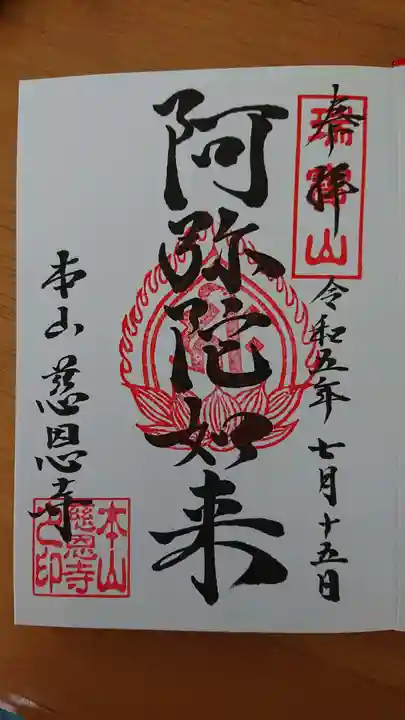 奉拝
瑞寶山
令和五年七月十五日
阿弥陀如来
本山慈恩寺
本山
慈恩寺
之印